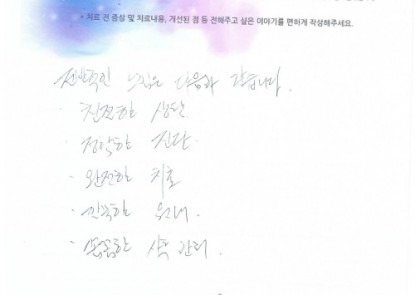 * 치료 전 증상 및 치료내용, 개선된 점 등 전해주고 싶은 이야기를 편하게 작성해주세요.
전반적인 느낌은 다음과 같습니다.
· 친절한 상담
· 정확한 진단
· 완전한 치료
· 깐족한 유머.
· 사후 관리.